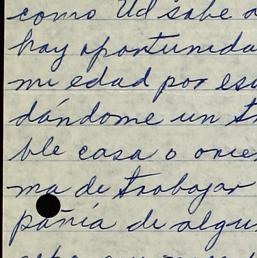 como Ud sabe
hay oportunida
mi edad por es
dándome un t
ble casa o orie
ma de trabajar
pañía de algu